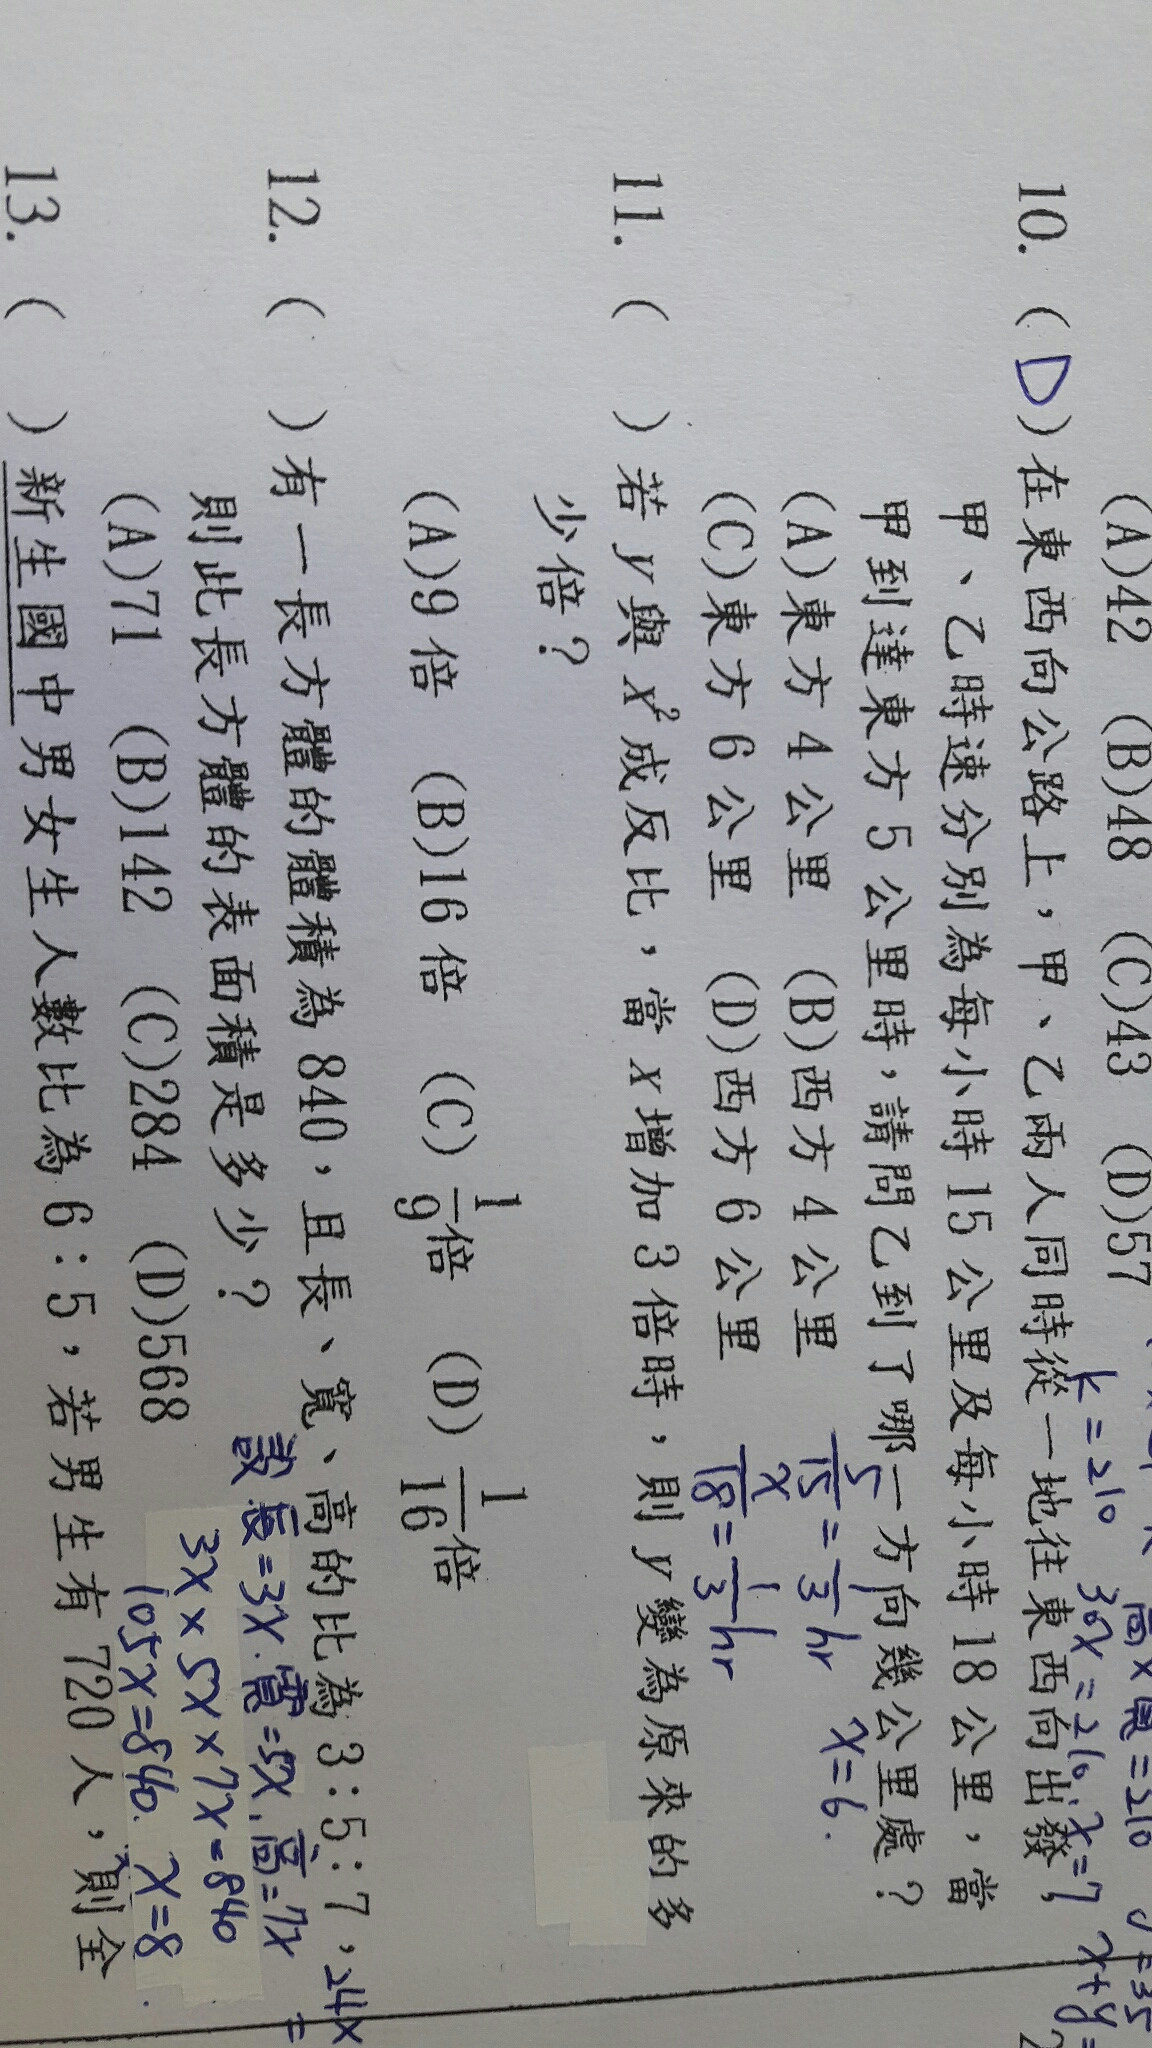 (A)42 (B)48 (C)43 (D)57
k=210 30x=210. x=7
10. (D)在東西向公路上，甲、乙兩人同時從一地往東西向出發，
甲、乙時速分別為每小時 15 公里及每小時 18 公里，當
甲到達東方 5 公里時，請問乙到了哪一方向幾公里處？
(A)東方 4 公里 (B)西方 4 公里
5/15=1/3hr x=6.
(C)東方 6 公里 (D)西方 6 公里
x/18=1/3hr
11. ( )若 y 與 x² 成反比，當 x 增加 3 倍時，則 y 變為原來的多
少倍？
(A)9 倍 (B)16 倍 (C) 1/9 倍 (D) 1/16 倍
12. ( )有一長方體的體積為 840，且長、寬、高的比為 3：5：7，
則此長方體的表面積是多少？
設長=3x.寬=5x.高=7x
(A)71 (B)142 (C)284 (D)568
3x×5x×7x=840
105x=840. x=8
13. ( )新生國中男女生人數比為 6：5，若男生有 720 人，則全